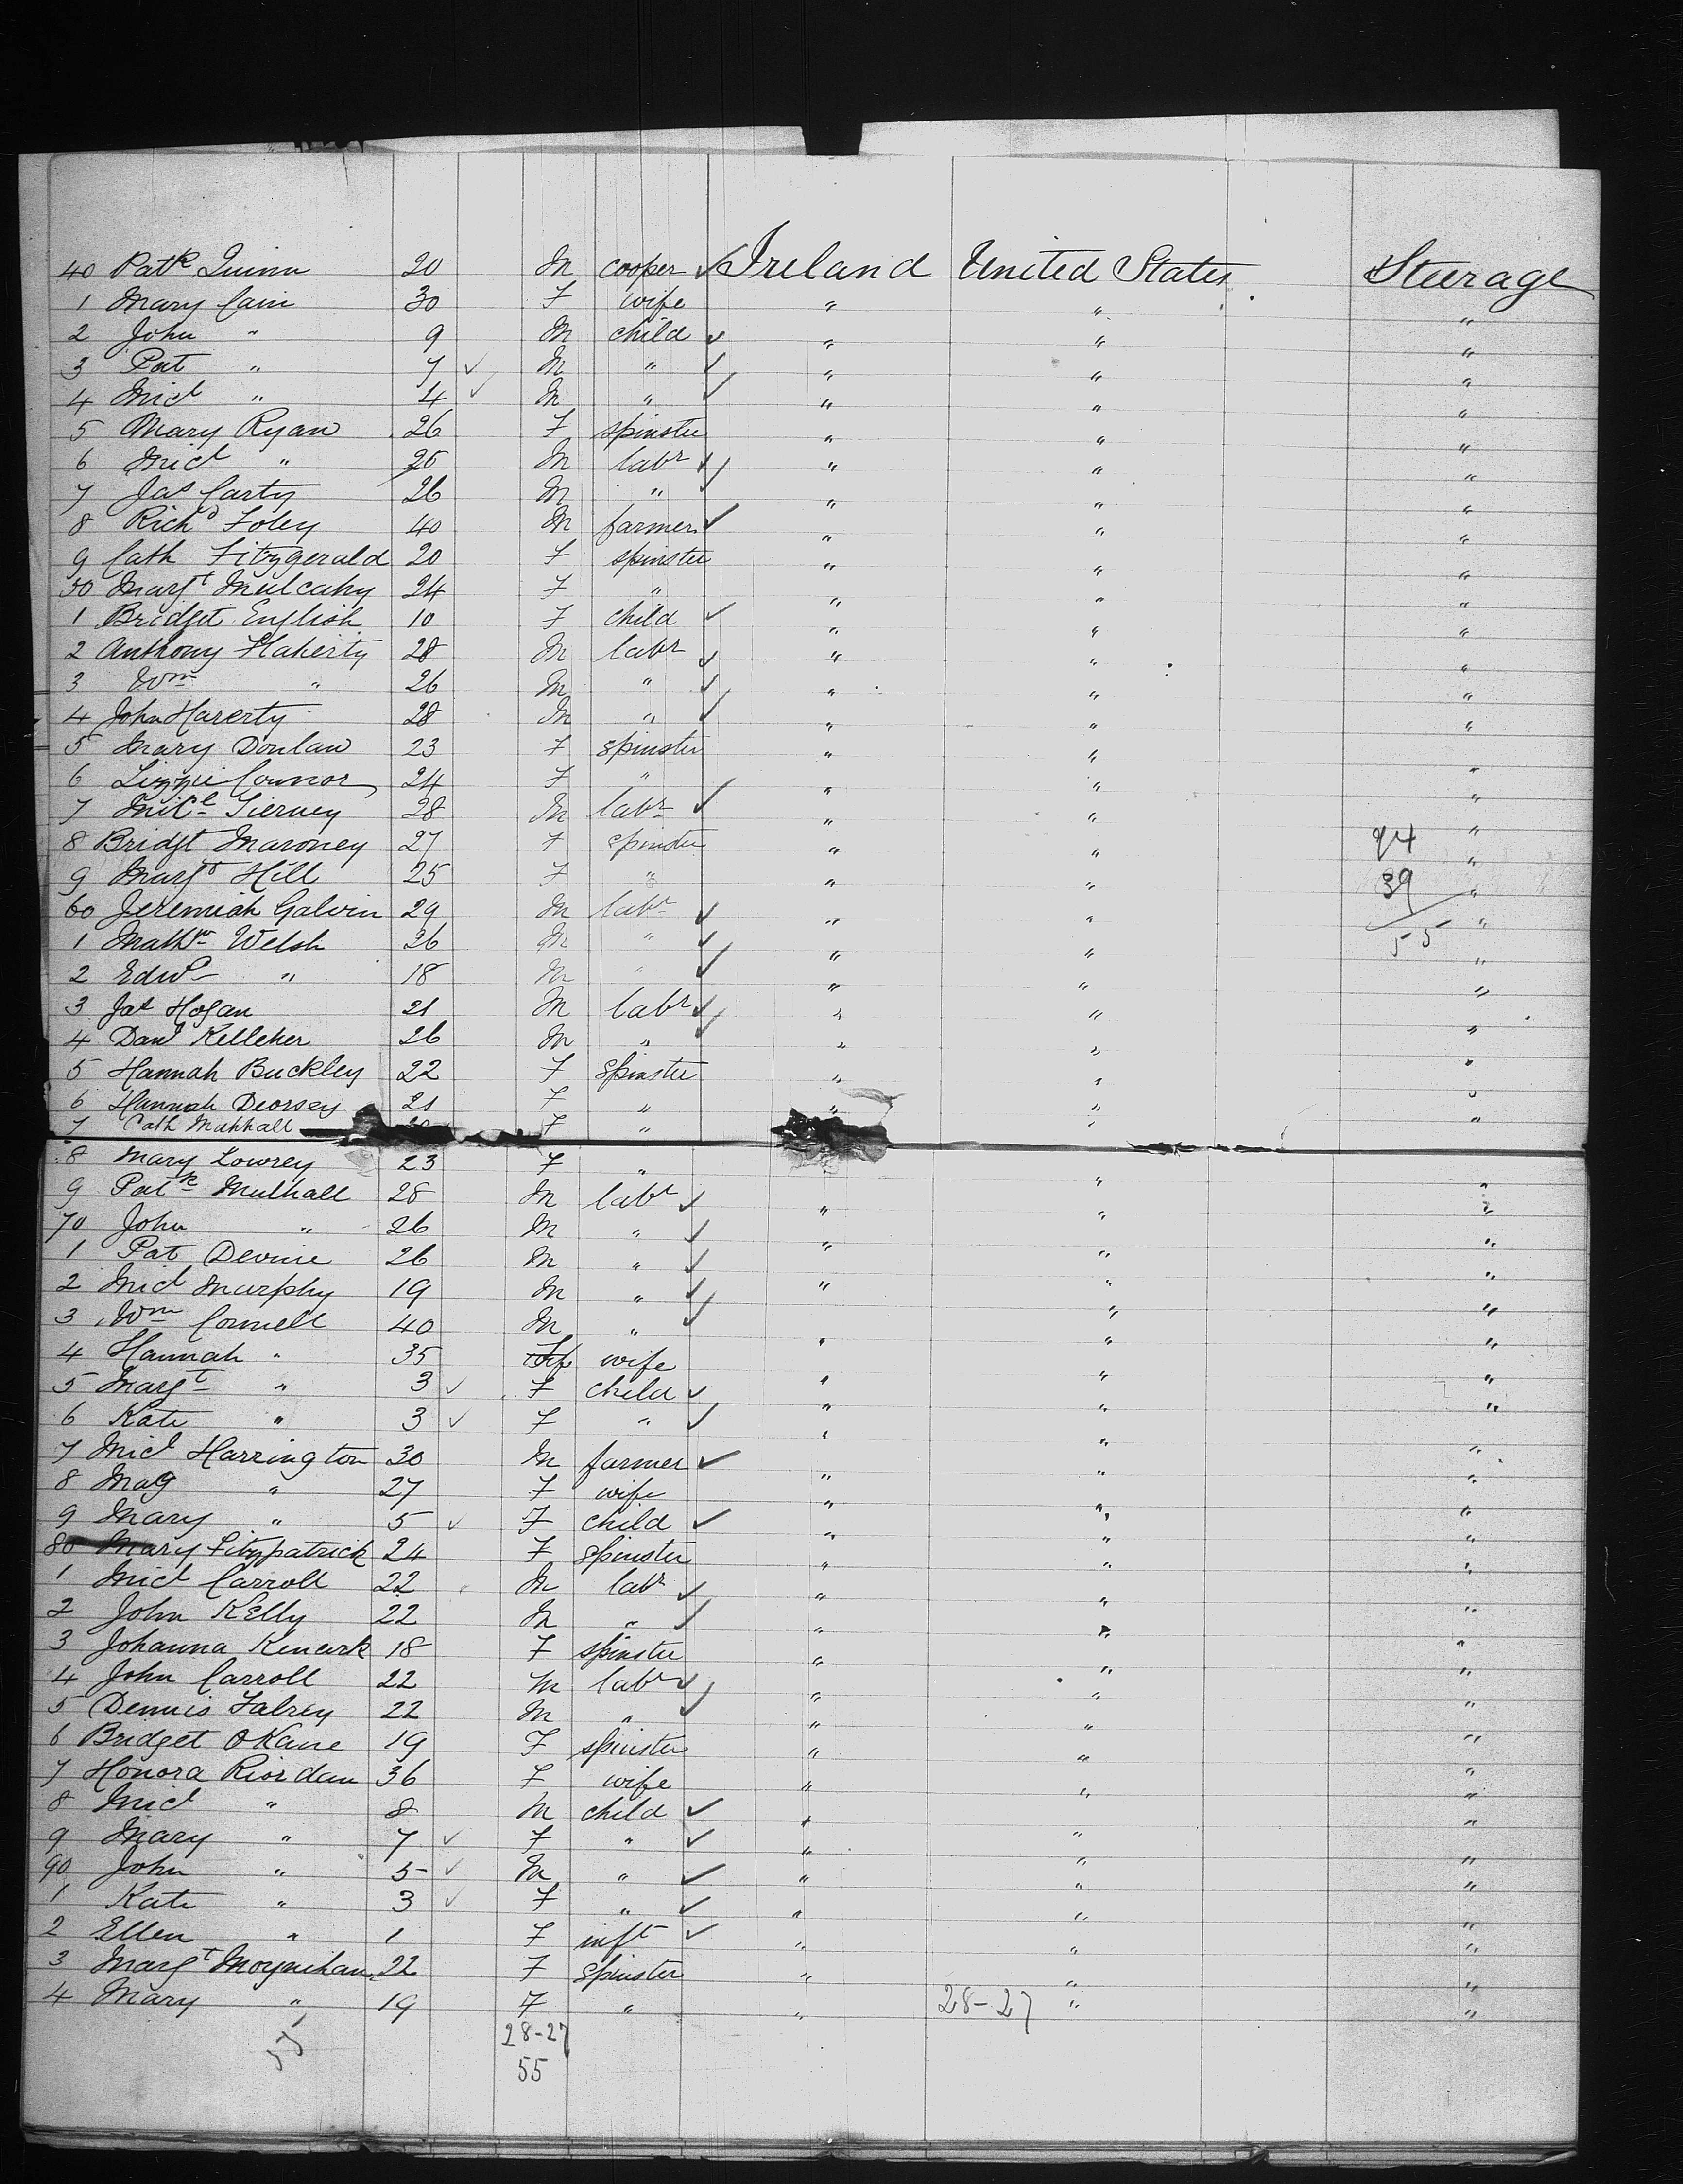 40 Patk Quinn 20 M cooper ✓ Ireland United States Steerage
1 Mary Cain 30 F wife " " "
2 John " 9 M child ✓ " " "
3 Pat " 7 ✓ M " ✓ " " "
4 Micl " 4 ✓ M " ✓ " " "
5 Mary Ryan 26 F spinster " " "
6 Micl " 25 M labr ✓ " " "
7 Jas Carty 26 M " ✓ " " "
8 Richd Foley 40 M farmer ✓ " " "
9 Cath Fitzgerald 20 F spinster " " "
50 Margt Mulcahy 24 F " " " "
1 Bridget English 10 F child ✓ " " "
2 Anthony Flaherty 28 M labr ✓ " " "
3 Wm " 26 M " ✓ " " "
4 John Harerty 28 M " ✓ " " "
5 Mary Donlan 23 F spinster " " "
6 Lizzie Connor 24 F " " " "
7 Micl Tierney 28 M labr ✓ " " "
8 Bridgt Maroney 27 F spinster " " 94 "
9 Margt Hill 25 F " " " 39 "
60 Jeremiah Galvin 29 M labr ✓ " " "
1 Mathw Welsh 26 M " ✓ " " 55 "
2 Edwd " 18 M " ✓ " " "
3 Jas Hogan 21 M labr ✓ " " "
4 Danl Kelleher 26 M " ✓ " " "
5 Hannah Buckley 22 F Spinster " " "
6 Hannah Deorsey 21 F " " " "
7 Cath Muhhall F " " " "
8 Mary Lowrey 23 F " " "
9 Patk Mulhall 28 M labr ✓ " " "
70 John " 26 M " ✓ " " "
1 Pat Devine 26 M " ✓ " " "
2 Micl Murphy 19 M " ✓ " " "
3 Wm Connell 40 M " ✓ " "
4 Hannah " 35 wife " " "
5 Margt " 3 ✓ F child ✓ " " "
6 Kate " 3 ✓ F " ✓ " " "
7 Micl Harrington 30 M farmer ✓ " " "
8 Mag " 27 F wife " " "
9 Mary " 5 ✓ F child ✓ " " "
80 Mary Fitzpatrick 24 F Spinster " " "
1 Micl Carroll 22 M labr ✓ " " "
2 John Kelly 22 M " ✓ " " "
3 Johanna Kenark 18 F spinster " " "
4 John Carroll 22 M labr ✓ " " "
5 Dennis Falvey 22 M " ✓ " " "
6 Bridget OKane 19 F spinster " " "
7 Honora Riordan 36 F wife " " "
8 Micl " 8 M child ✓ " " "
9 Mary " 7 ✓ F " ✓ " " "
90 John " 5 ✓ M " ✓ " " "
1 Kate " 3 ✓ F " ✓ " " "
2 Ellen " 1 F inft ✓ " " "
3 Margt Moynihan 22 F Spinster " " "
4 Mary " 19 F " " 28-27 " "
55 28-27
55